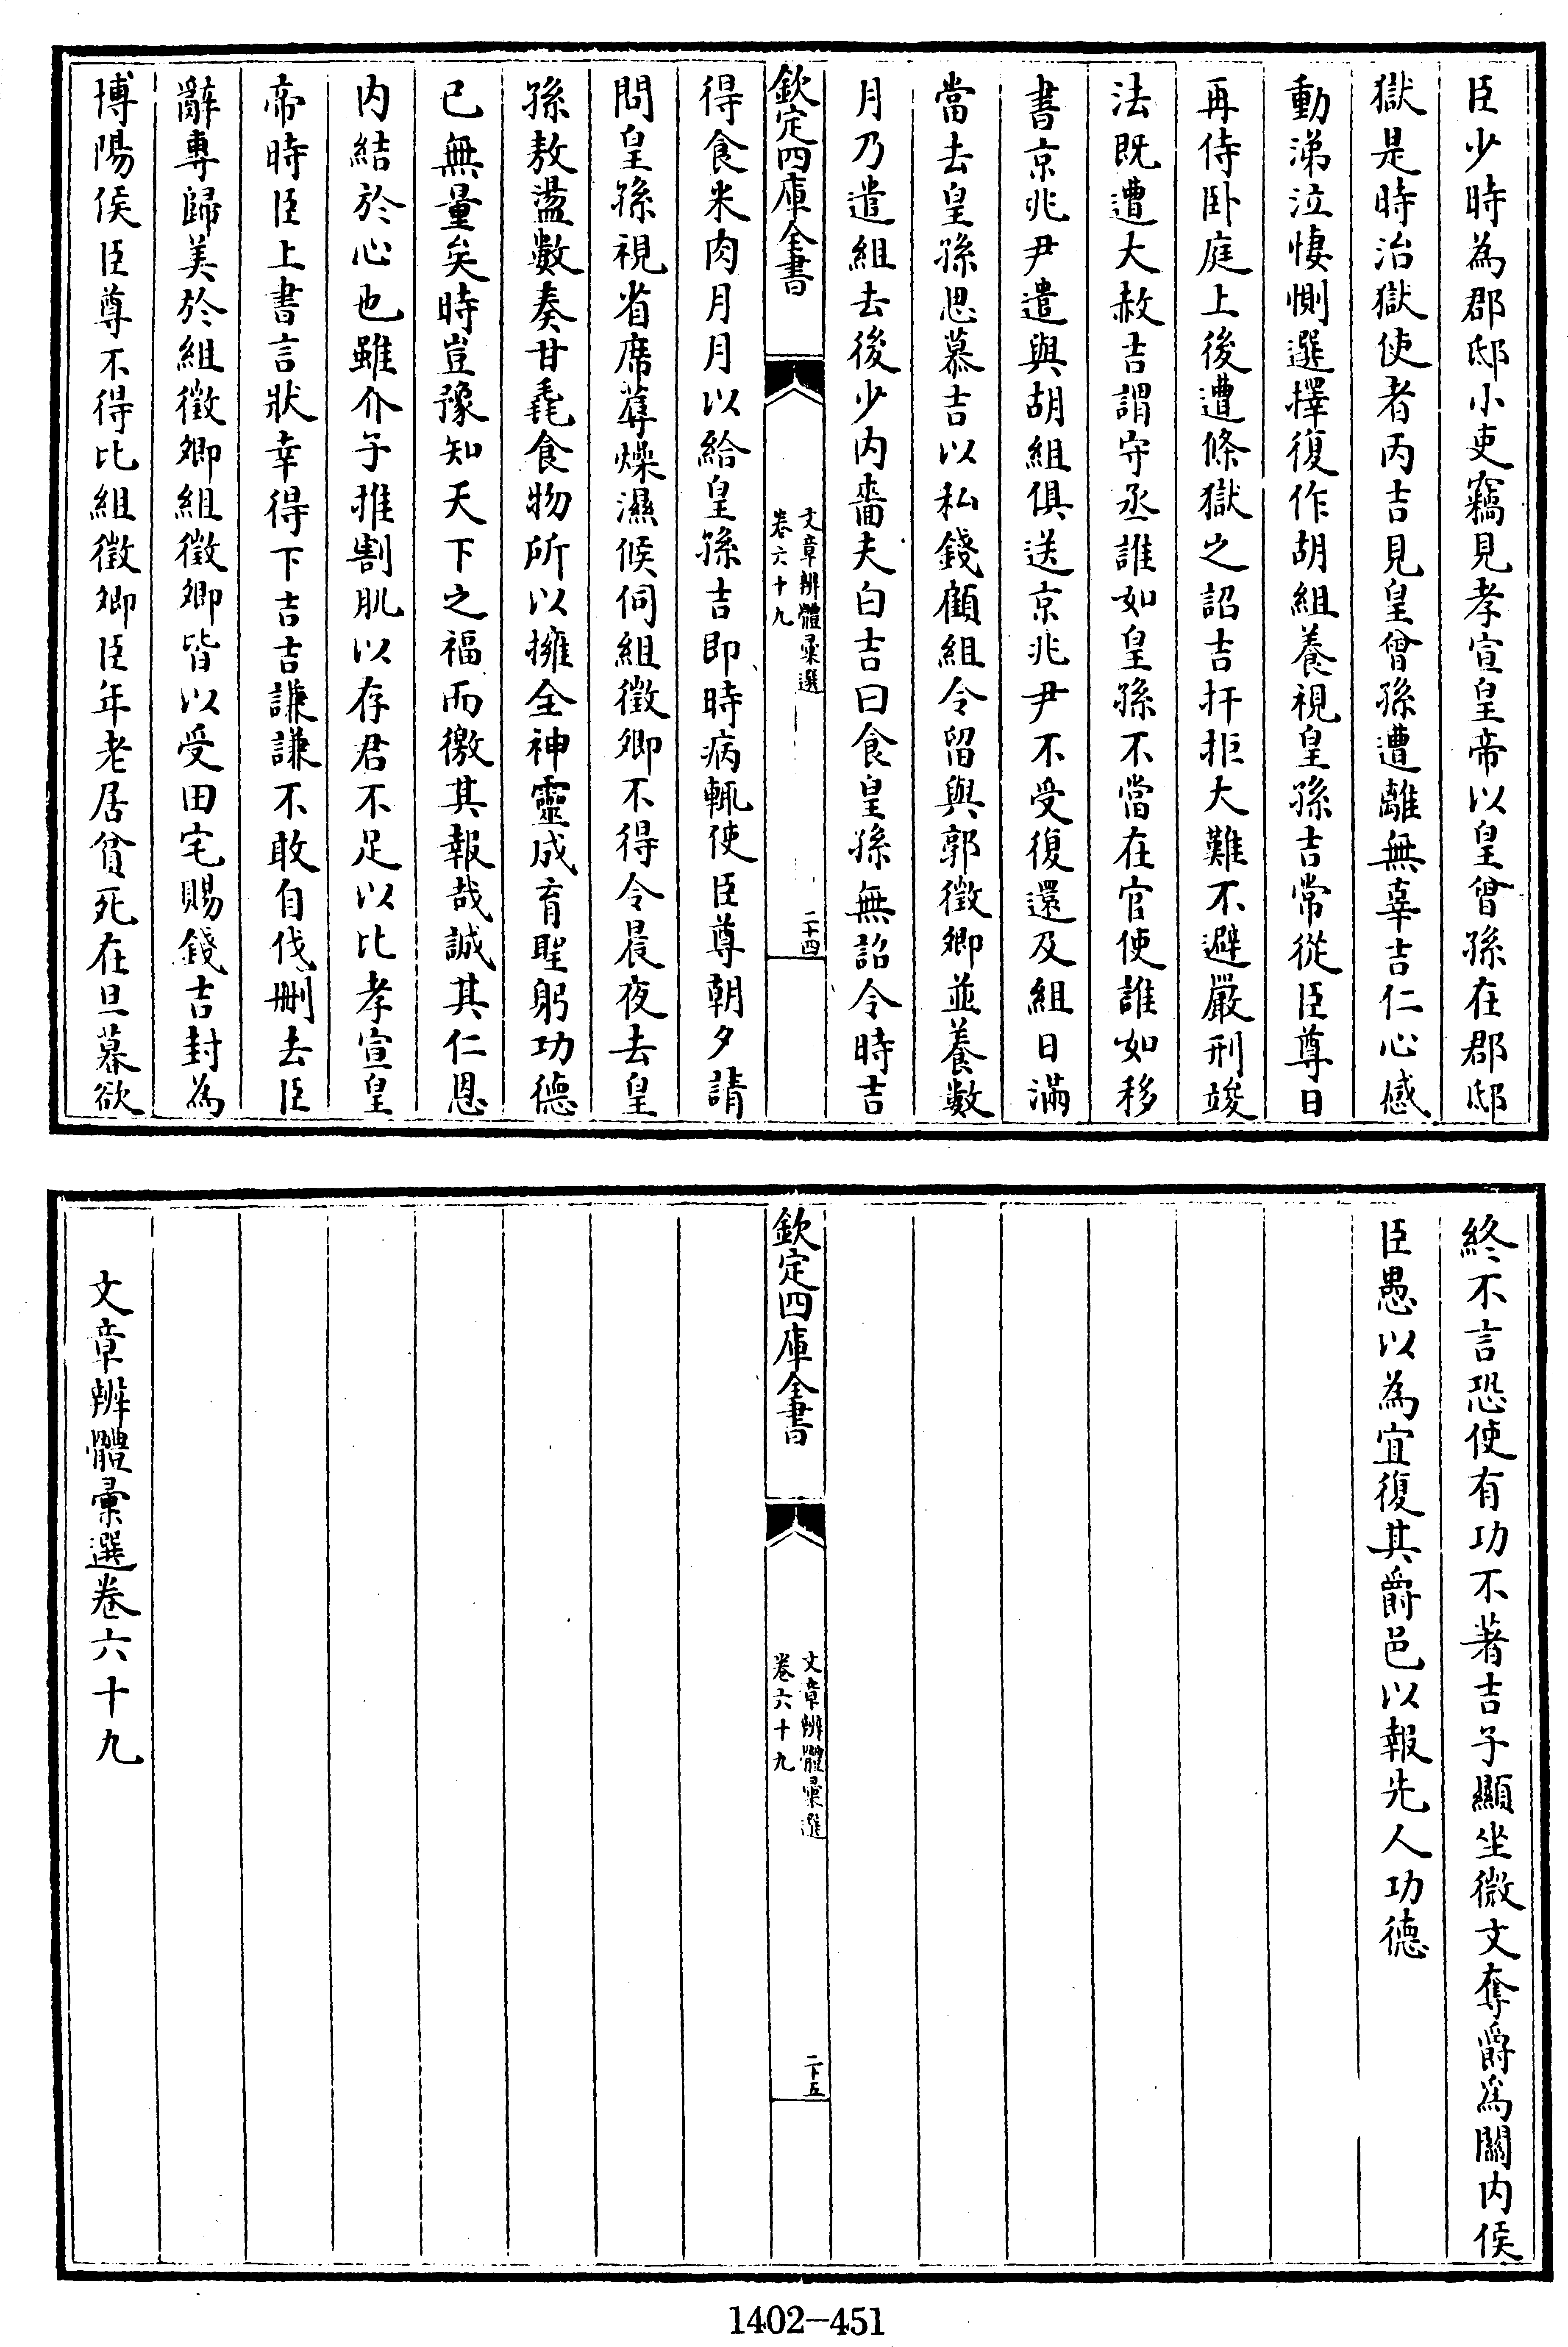 臣少時為郡邸小吏竊見孝宣皇帝以皇曾孫在郡邸
獄是時治獄使者丙吉見皇曾孫遭離無辜吉仁心感
動涕泣悽惻選擇復作胡組養視皇孫吉常從臣尊日
再侍卧庭上後遭條獄之詔吉扞拒大難不避嚴刑峻
法既遭大赦吉謂守丞誰如皇孫不當在官使誰如移
書京兆尹遣與胡組俱送京兆尹不受復還及組日滿
當去皇孫思慕吉以私錢顧組令留與郭徵卿並養數
月乃遣組去後少内嗇夫白吉曰食皇孫無詔令時吉
欽定四庫全書
文章辨體彚選
卷六十九
二十四
得食米肉月月以給皇孫吉即時病輒使臣尊朝夕請
問皇孫視省席蓐燥濕候伺組徵卿不得令晨夜去皇
孫敖盪數奏甘毳食物所以擁全神靈成育聖躬功德
已無量矣時豈豫知天下之福而徼其報哉誠其仁恩
内結於心也雖介子推割肌以存君不足以比孝宣皇
帝時臣上書言狀幸得下吉吉謙謙不敢自伐刪去臣
辭專歸美於組徵卿組徵卿皆以受田宅賜錢吉封為
博陽侯臣尊不得比組徵卿臣年老居貧死在旦暮欲
終不言恐使有功不著吉子顯坐微文奪爵為關内侯
臣愚以為宜復其爵邑以報先人功德
欽定四庫全書
文章辨體彚選
卷六十九
二十五
文章辨體彚選卷六十九
1402-451